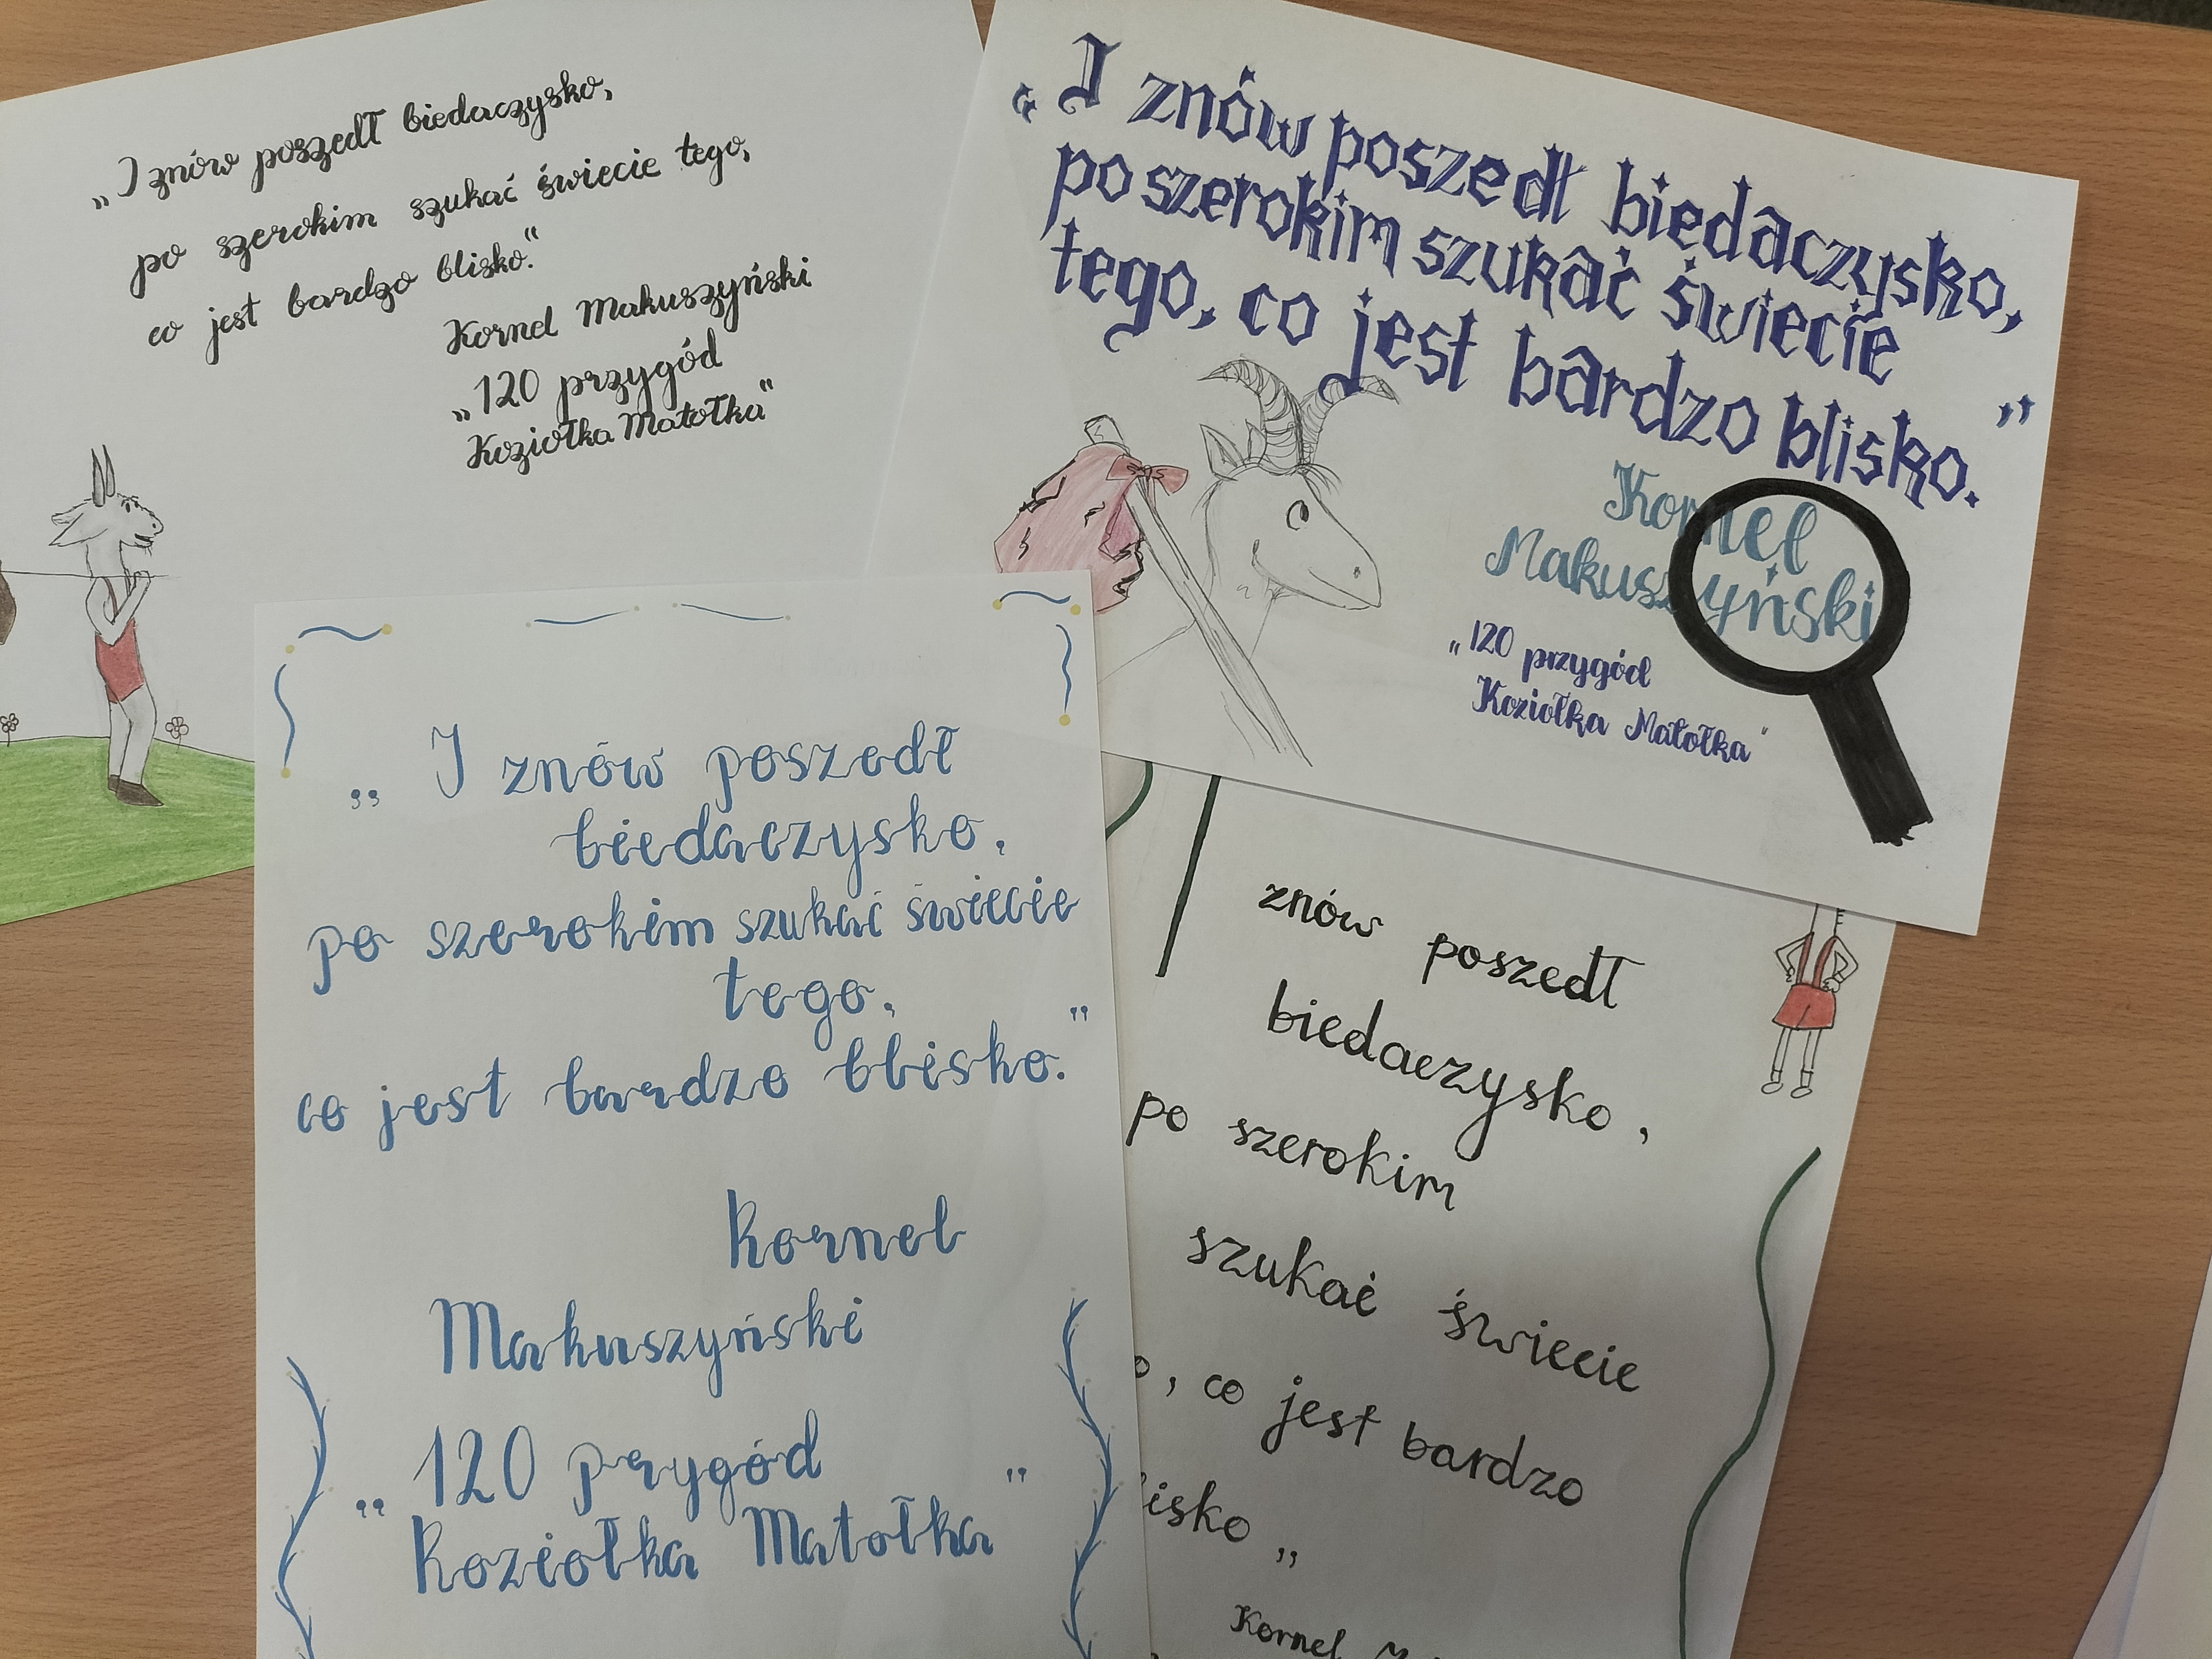 „I znów poszedł biedaczysko,
po szerokim szukać świecie tego,
co jest bardzo blisko."
Kornel Makuszyński
„120 przygód
Koziołka Matołka"
„I znów poszedł biedaczysko,
po szerokim szukać świecie
tego, co jest bardzo blisko."
Kornel
Makuszyński
„120 przygód
Koziołka Matołka"
„I znów poszedł
biedaczysko,
po szerokim szukać świecie
tego,
co jest bardzo blisko."
Kornel
Makuszyński
„120 przygód
Koziołka Matołka"
znów poszedł
biedaczysko,
po szerokim
szukać świecie
, co jest bardzo
isko „
Kornel M